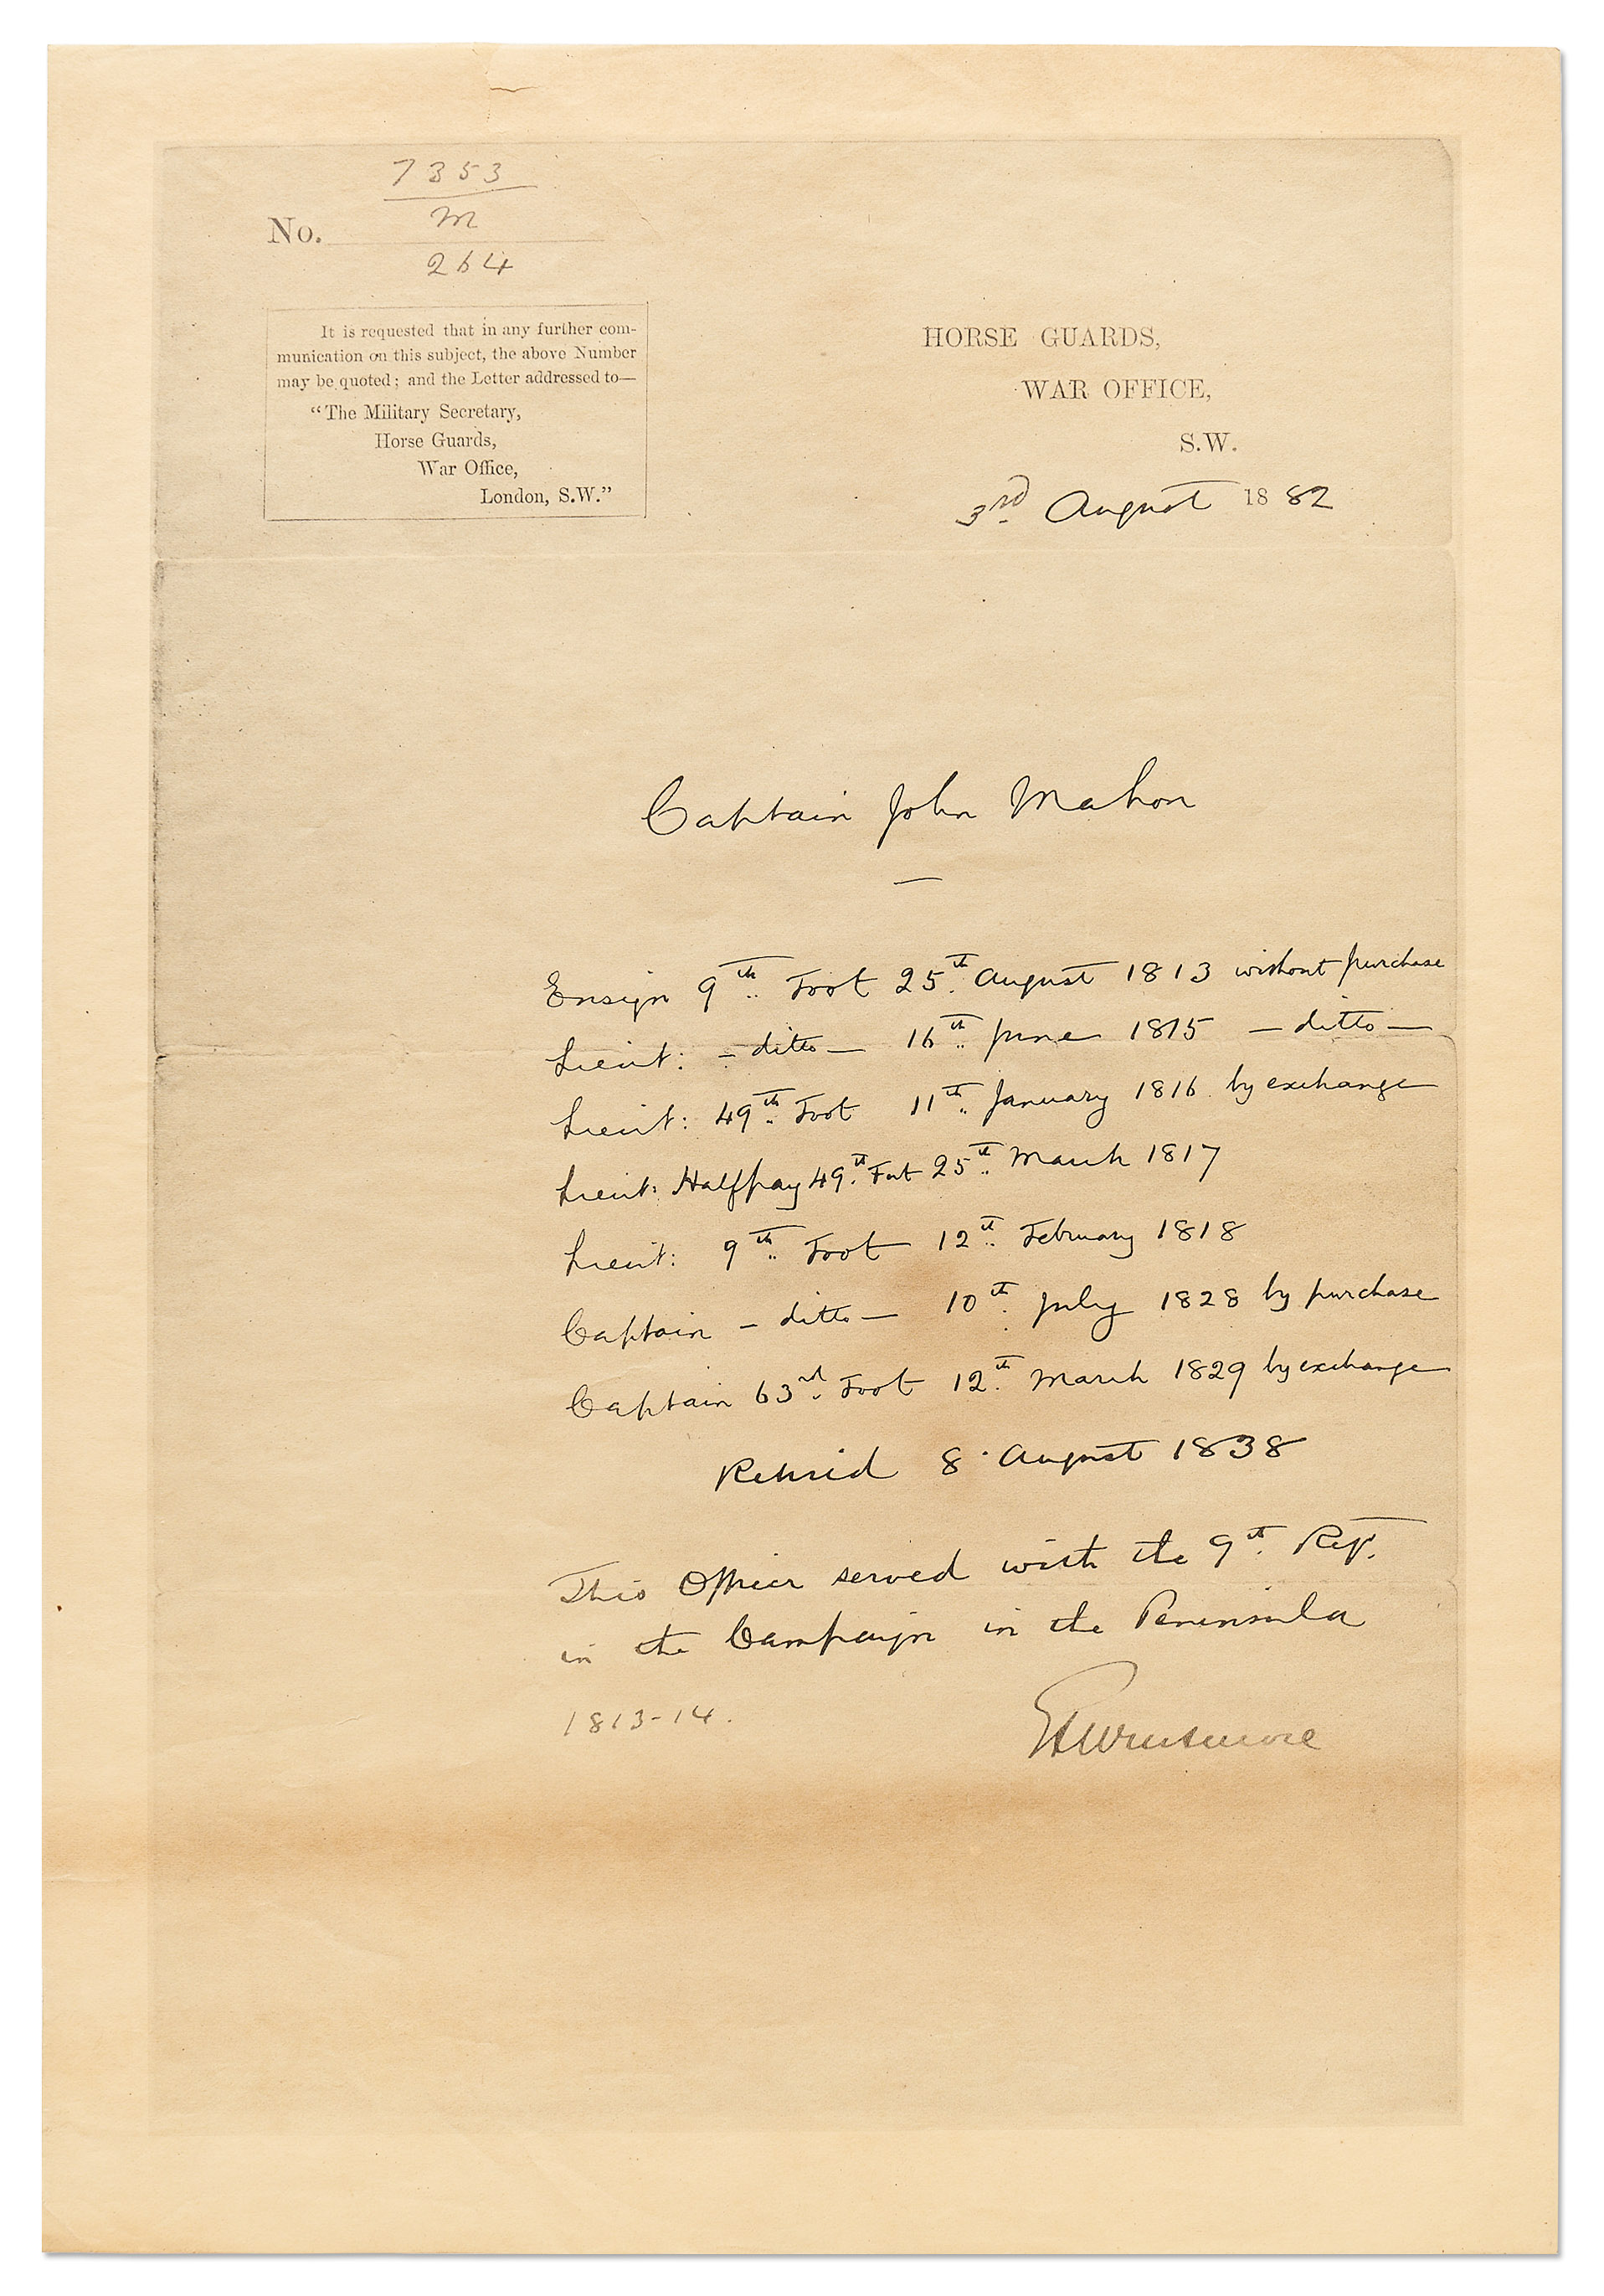 7353
m
No.
264
It is requested that in any further com-
munication on this subject, the above Number
may be quoted; and the Letter addressed to—
"The Military Secretary,
Horse Guards,
War Office,
London, S.W."
HORSE GUARDS,
WAR OFFICE,
S.W.
3rd August 1882
Captain John Mahon
Ensign 9th Foot 25th August 1813 without purchase
Lieut: – ditto – 16th June 1815 – ditto –
Lieut: 49th Foot 11th January 1816 by exchange
Lieut: Halfpay 49th Foot 25th March 1817
Lieut: 9th Foot 12th February 1818
Captain – ditto – 10th July 1828 by purchase
Captain 63rd Foot 12th March 1829 by exchange
Retired 8 August 1838
This Officer served with the 9th Regt.
in the Campaign in the Peninsula
1813-14.